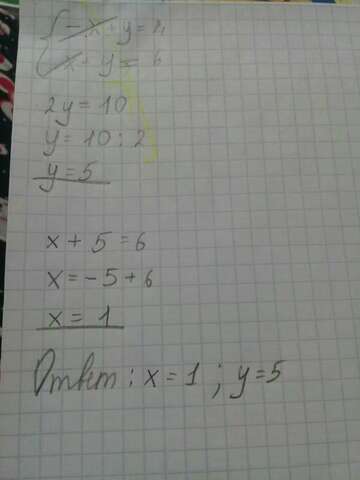 { -x + y = 4
x + y = 6
2y = 10
y = 10 : 2
y = 5
x + 5 = 6
x = -5 + 6
x = 1
Ответ : x = 1 ; y = 5